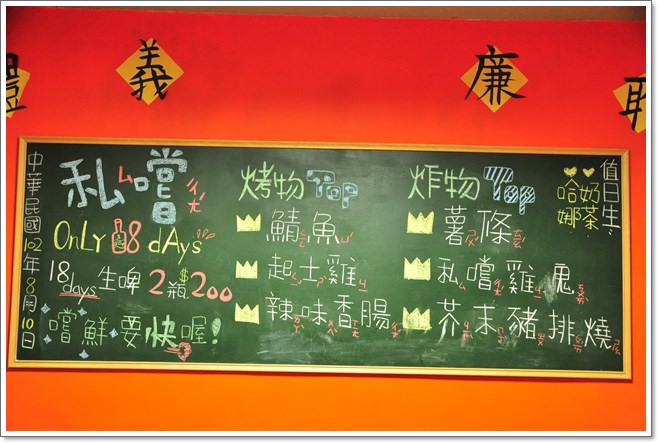 禮 義 廉 恥
中華民國102年8月10日
私嚐
ONLY 18 dAys
18days生啤2瓶$200
嚐鮮要快喔!
烤物Top
鯖魚
起士雞
辣味香腸
炸物Top
薯條
私嚐雞塊
芥末豬排燒
值日生:
奶茶
哈娜